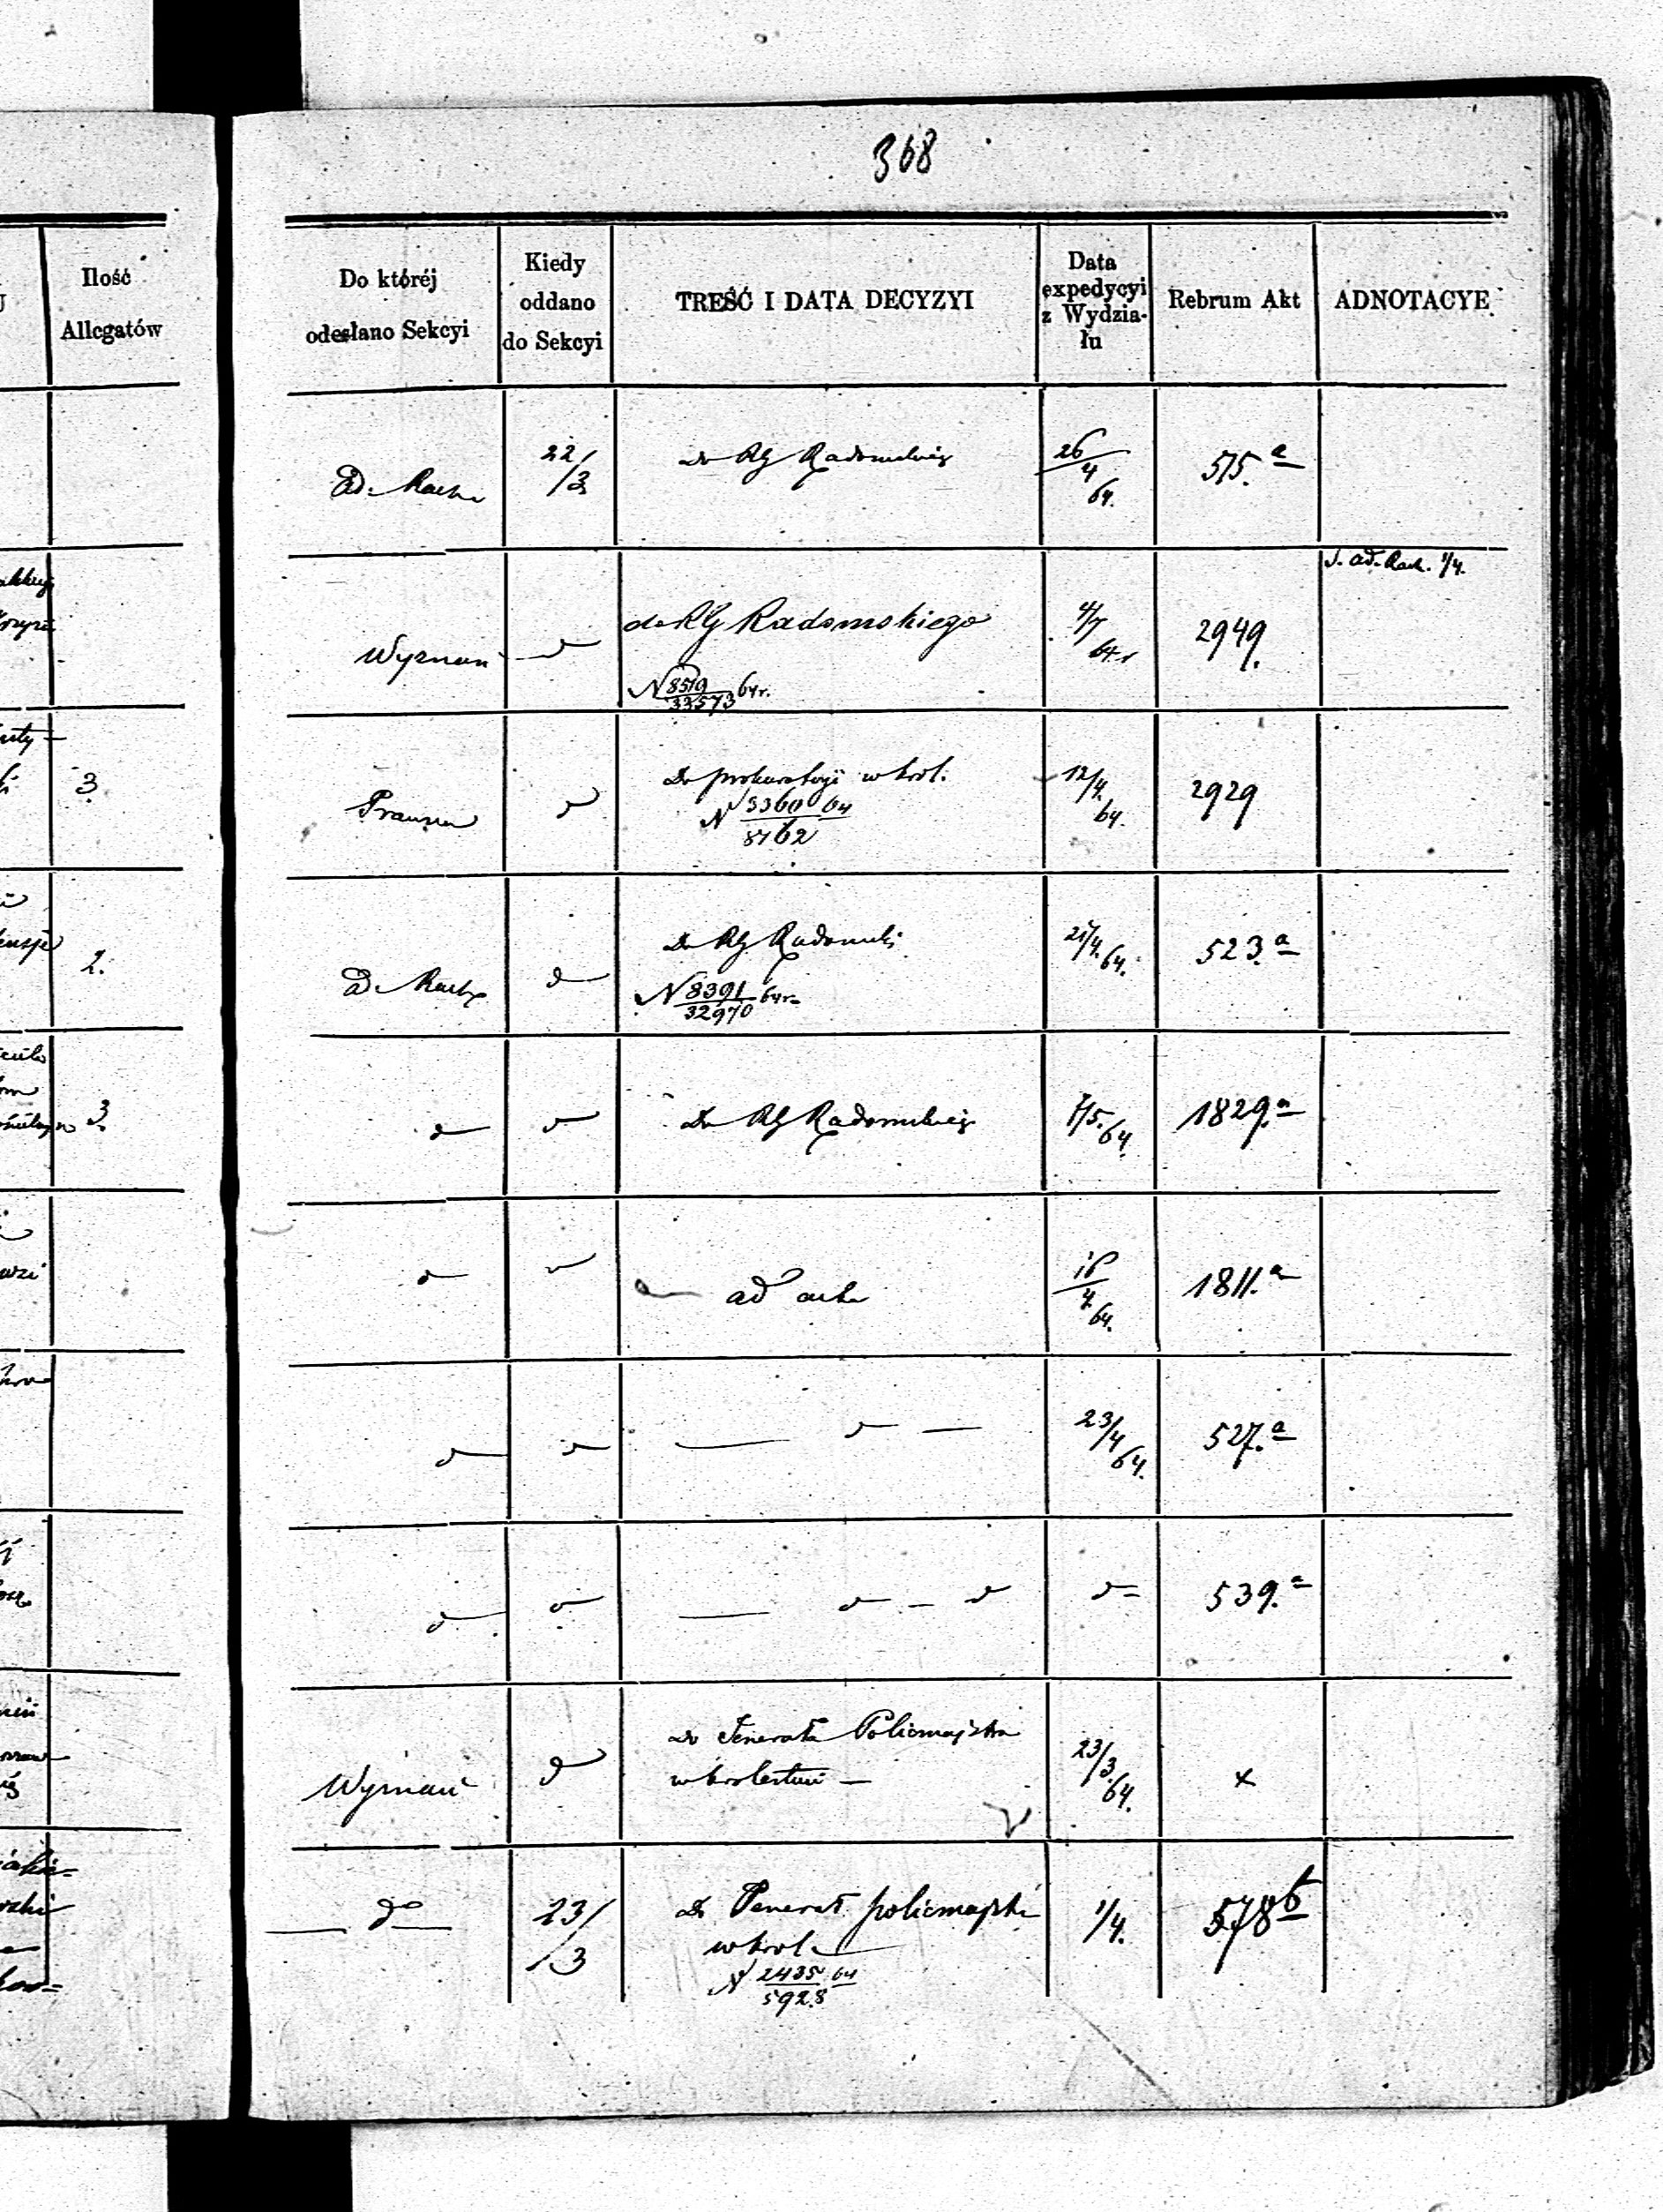 368
Ilość
Allegatów
Do któréj
odesłano Sekcyi
Kiedy
oddano
do Sekcyi
TREŚĆ I DATA DECYZYI
Data
expedycyi
z Wydzia-
łu
Rebrum Akt
ADNOTACYE
22/3
Do RG Radomskieg
26/4 64.
515. a
Ad. Rach.
J. Ad. Rach. 1/4.
Wyznań
do RG Radomskiego
N 8519/33573 64 r.
4/7 64 r
2949.
3.
Prawna
Do prokuratoryi w król.
N 3360/8762 64
12/4. 64.
2929
2.
Ad. Rach.
Do RG Radomski
N 8391/32970 64 r.
21/4. 64.
523. a
3.
Do RG Radomskieg
7/5. 64.
1829. a
ad acta
16/4. 64.
1811. a
23/4 64.
527. a
539. a
Wyznań
do Jenerała Policmajstra
w królestwi
23/3 64.
x
do
23/3
Do Jenerał policmajstr
w król.
N 2435/5928 64
1/4.
578 b